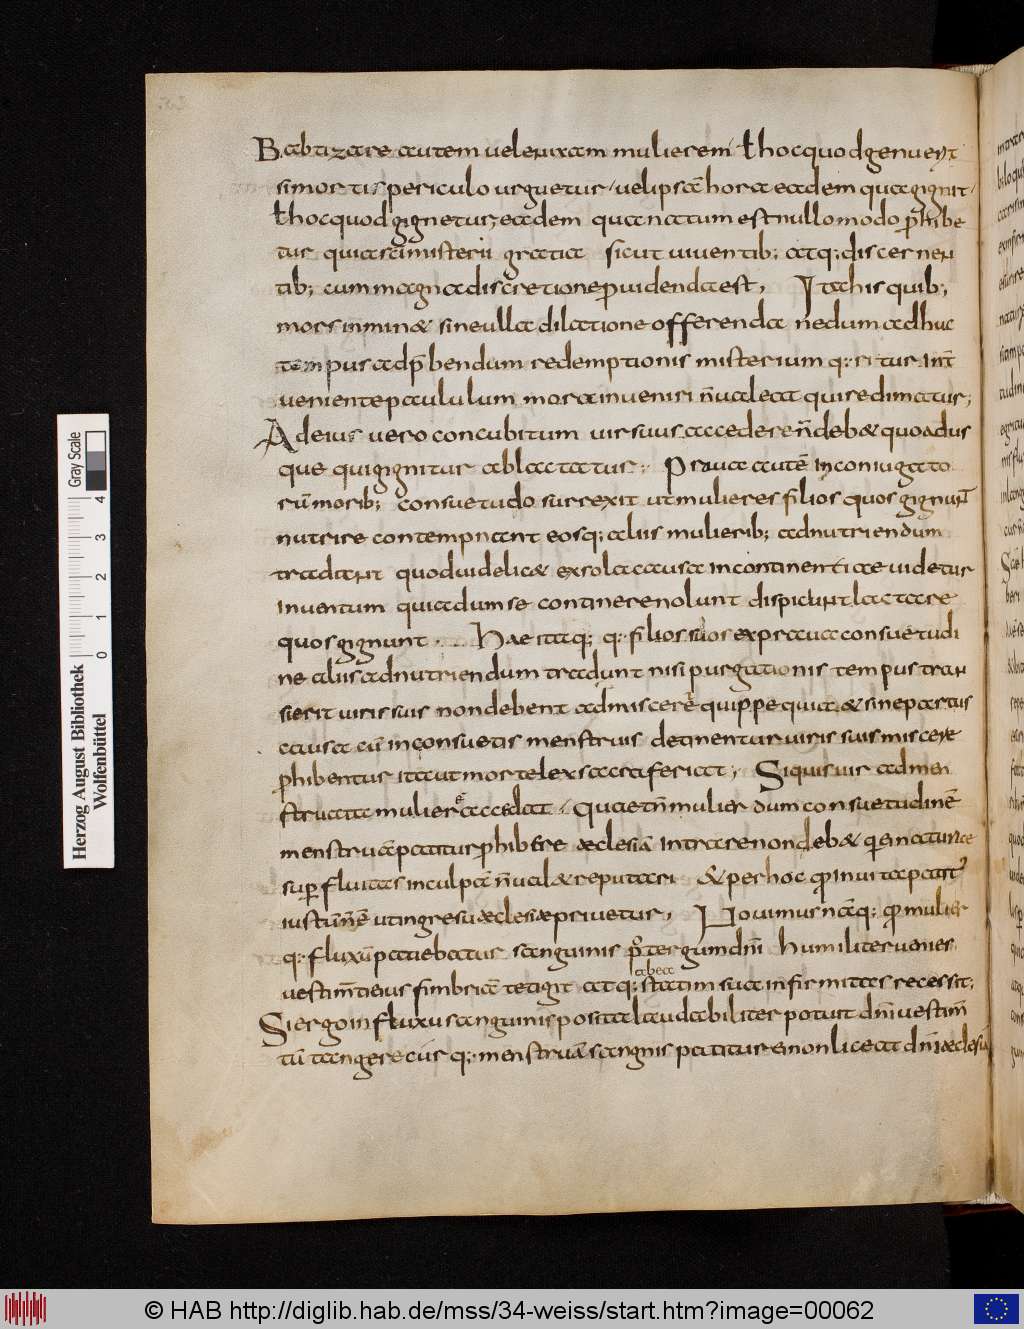 Babtizare autem uel enixam mulierem ł hoc quod genuerit
si mortis periculo urguetur, uel ipsa hora eadem qua gignit,
ł hoc quod gignetur, eadem qua natum est nullo modo ꝓhibe
tur quia sci misterii gratia sicut uiuentib; atq; discernen
tib; cum magna discretione ꝓuidenda est, Ita his quib;
mors inmin& sine ulla dilatione offerenda ne dum adhuc
tempus ad p̄bendum redemptionis misterium q:ritur int̄
ueniente paululum mora inueniri n̄ ualeat qui redimatur;
Ad eius uero concubitum uir suus accedere n̄ deb& quoadus
que qui gignitur ablactatur; Praua autē in coniugato
rū morib; consuetudo surrexit ut mulieres filios quos gignun̄t
nutrire contempnant eosq; aliis mulierib; ad nutriendum
tradant quod uidelic& ex sola causa incontinentiae uidetur
inuentum quia dum se continere nolunt dispiciunt lactare
quos gignunt. Hae itaq; q: filios suos ex praua consuetudi
ne aliis ad nutriendum tradunt nisi purgationis tempus tran
sierit uiris suis non debent admisceri quippe quia & sine partus
causa cū in consuetis menstruis detinentur uiris suis miscere
ꝓhibentur ita ut morte lex sacra feriat; Si quis uir ad men
struata mulierē accedat. Quae tn̄ mulier dum consuetudinē
menstruā patitur ꝓhibere aeclesiā intrare non deb& q: ei naturae
suꝑfluitas in culpā n̄ ual& reputari & per hoc q̄ inuita patit᷑
iustū n̄ ē ut ingressu aeclesiae priuetur; Nouimus nāq; q̄ mulier
q: fluxū patiebatur sanguinis p̄ tergum dn̄i humiliter uenies
uestimti eius fimbriā tetigit atq; statim sua infirmitas recessit;
abea
Si ergo in fluxu sanguinis posita laudabiliter potuit dn̄i uestim̄
tū tangere cur q: menstruā sangnis patitur ei non liceat dn̄i aeclesiā
Herzog August Bibliothek
Wolfenbüttel
0 1 2 3 4
Gray Scale
© HAB http://diglib.hab.de/mss/34-weiss/start.htm?image=00062